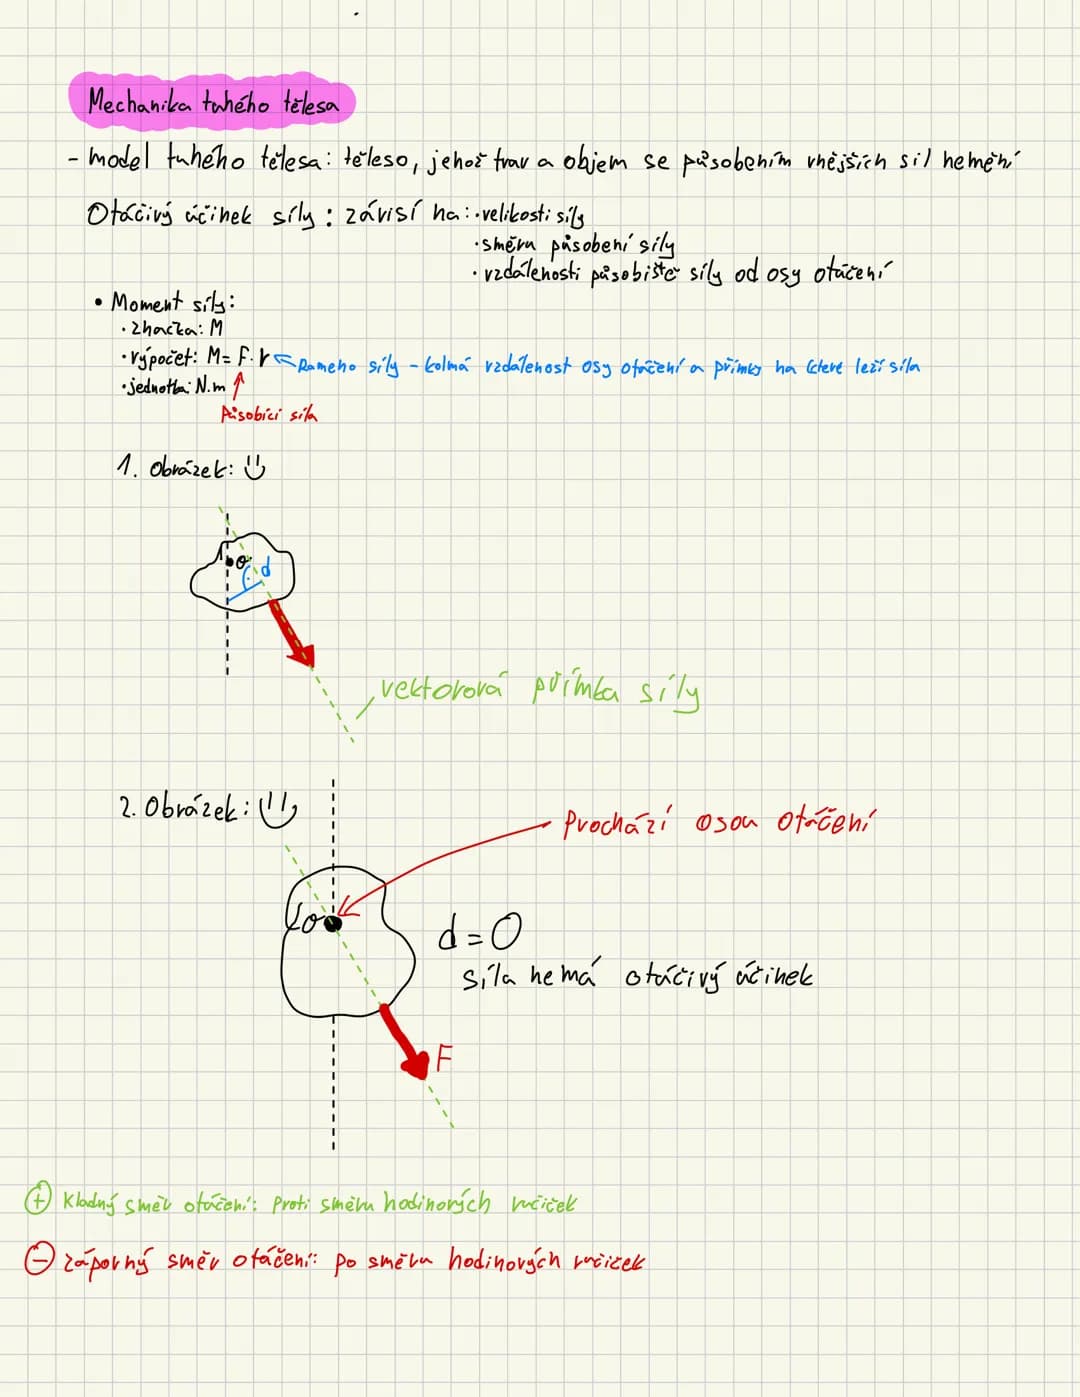 Mechanika tuhého tělesa
- model tuhého tělesa: těleso, jehož tvar a objem se působením vnějších sil nemění
Otáčivý účinek síly: závisí na: · velikosti síly
· směru působení síly
· vzdálenosti působiště síly od osy otáčení
• Moment síly:
· značka: M
· výpočet: M = F. r Rameno síly - kolmá vzdálenost osy otáčení a přímky na které leží síla
· jednotka: N.m
Působící síla
1. Obrázek:
o
d
vektorová přímka síly
2. Obrázek:
Prochází osou otáčení
o
d = 0
síla nemá otáčivý účinek
F
+ Kladný směr otáčení: Proti směru hodinových ručiček
- záporný směr otáčení: po směru hodinových ručiček